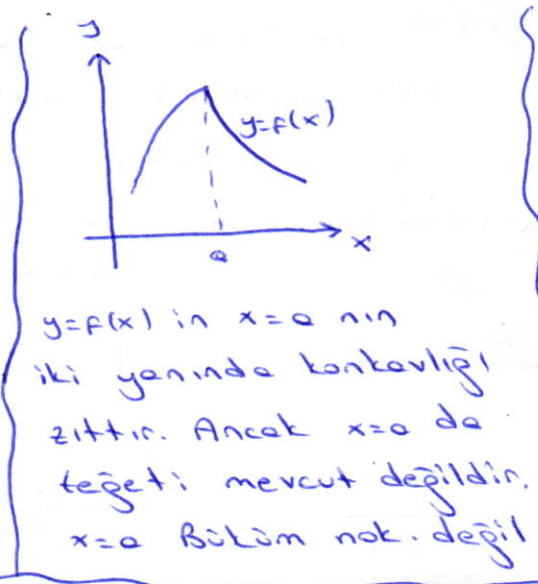 y
y=f(x)
x
a
y=f(x) in x=a nın
iki yanında konkavlığı
zıttır. Ancak x=a da
teğeti mevcut değildir.
x=a Büküm nok. değil